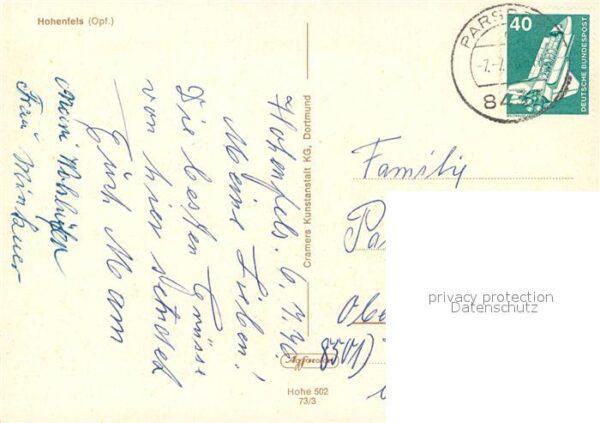 Hohenfels (Opf.)
Hohenfels. 6.7.76.
Meine Lieben!
Die besten Grüsse
von hier sendet
Euch Mam
Frau
Cramers Kunstanstalt KG, Dortmund
Hohe 502
73/3
PARSB
-7.-7.
84
40
DEUTSCHE BUNDESPOST
Family
Pa
Obe
8501)
privacy protection
Datenschutz